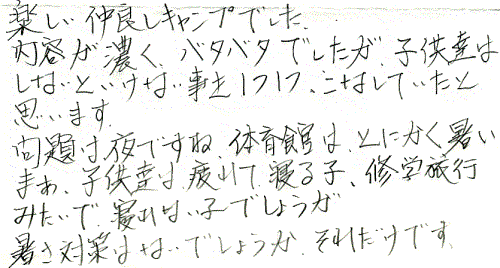 楽しい仲良しキャンプでした。
内容が濃く、バタバタでしたが、子供達は
しないといけない事を1つ1つ、こなしていたと
思います。
問題は夜ですね、体育館は、とにかく暑い
まあ、子供達は、疲れて寝る子、修学旅行
みたいで、寝れない子でしょうが
暑さ対策はないでしょうか、それだけです。